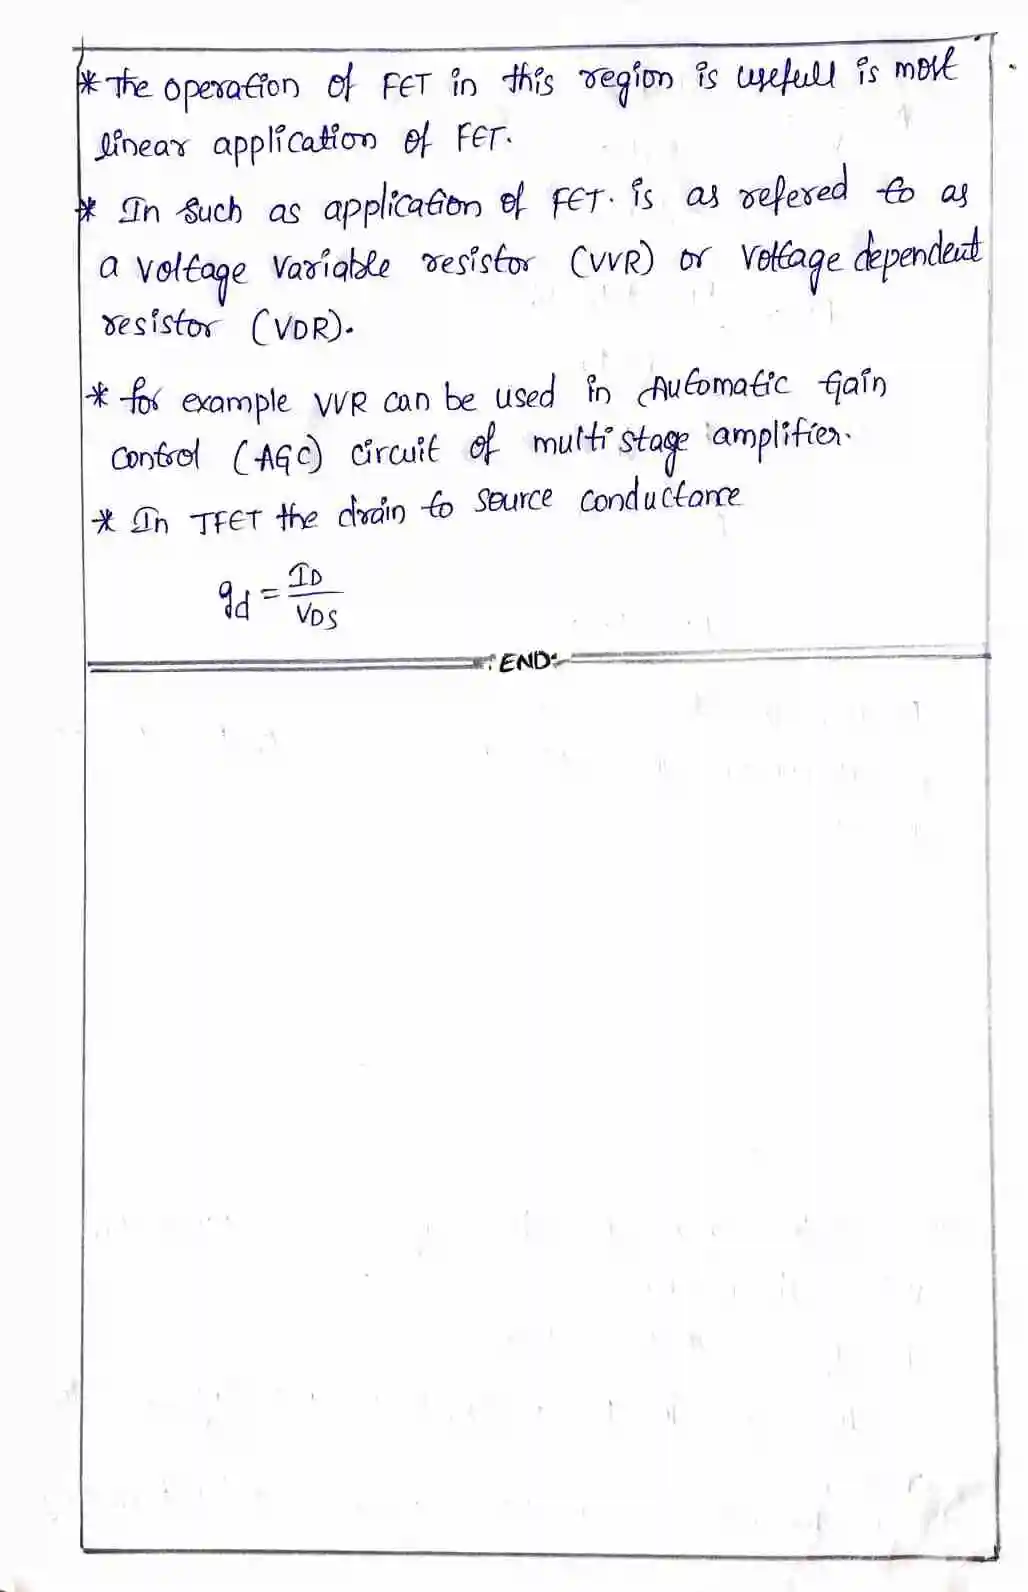 * The operation of FET in this region is usefull is most
linear application of FET.
* In such as application of FET. is as refered to as
a voltage variable resistor (VVR) or voltage dependent
resistor (VDR).
* for example VVR can be used in Automatic Gain
Control (AGC) circuit of multi stage amplifier.
* In JFET the drain to source conductance
gd = ID
VDS
: END: